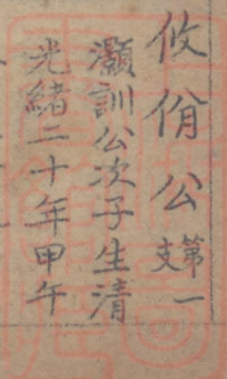 攸佾公第一支
灝訓公次子生清
光緒二十年甲午